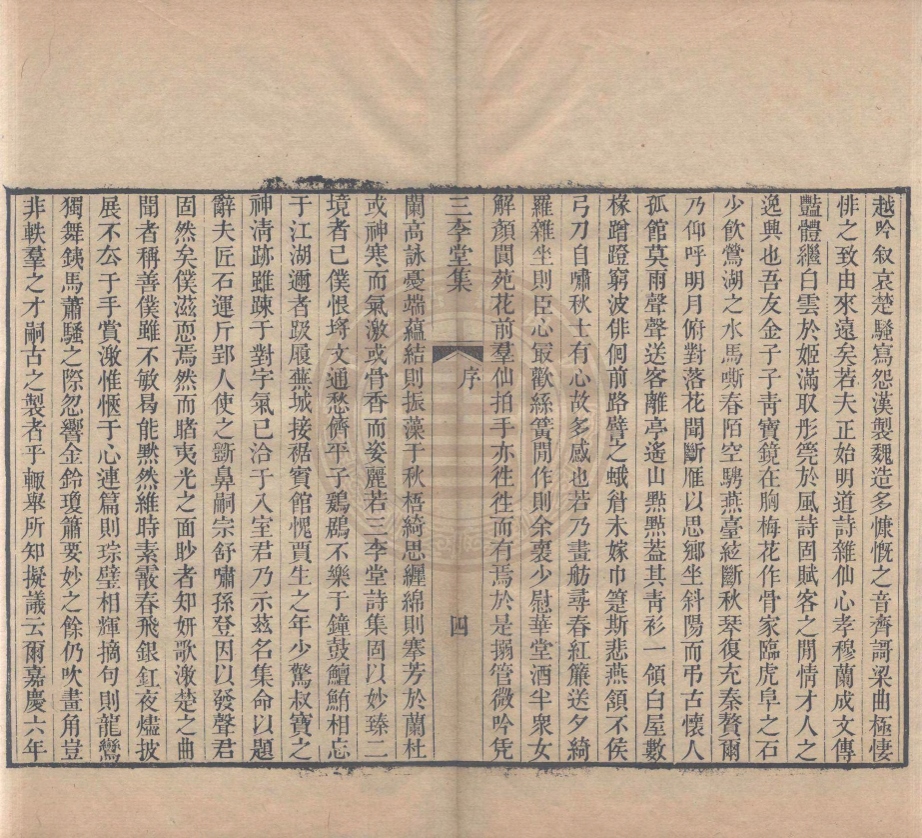 越吟叙哀楚騷寫怨漢製魏造多慷慨之音齊謌梁曲極悽
悱之致由來遠矣若夫正始明道詩雜仙心孝穆蘭成文傳
豔體繼白雲於姬滿取彤筦於風詩固賦客之閒情才人之
逸興也吾友金子子靑寶鏡在胸梅花作骨家臨虎阜之石
少飲鶯湖之水馬嘶春陌空騁燕臺絃斷秋琴復充秦贅爾
乃仰呼明月俯對落花聞斷雁以思鄉坐斜陽而弔古懷人
孤館莫雨聲聲送客離亭遙山點點蓋其靑衫一領白屋數
椽蹭蹬窮波俳佪前路譬之蛾眉未嫁巾箑斯悲燕頷不侯
弓刀自嘯秋士有心故多感也若乃畫舫尋春紅簾送夕綺
羅雜坐則臣心最歡絲簧閒作則余褱少慰華堂酒半衆女
解顏閬苑花前羣仙拍手亦徃徃而有焉於是搦管微吟凭
三李堂集 序 四
闌高詠憂端蘊結則振藻于秋梧綺思纏綿則搴芳於蘭杜
或神寒而氣激或骨香而姿麗若三李堂詩集固以妙臻二
境者已僕恨埒文通愁儕平子鷃鷃不樂于鐘鼓鱣鮪相忘
于江湖邇者趿履蕪城接裾賓館愧賈生之年少驚叔寶之
神淸跡雖踈于對宇氣已洽于入室君乃示茲名集命以題
辭夫匠石運斤郢人使之斵鼻嗣宗舒嘯孫登因以發聲君
固然矣僕滋恧焉然而睹夷光之面眇者知妍歌激楚之曲
聞者稱善僕雖不敏曷能黙然維時素霰春飛銀釭夜燼披
展不厺于手賞激惟愜于心連篇則琮璧相輝摘句則龍鸞
獨舞銕馬蕭騷之際忽響金鈴瓊簫要妙之餘仍吹畫角豈
非軼羣之才嗣古之製者乎輙舉所知擬議云爾嘉慶六年